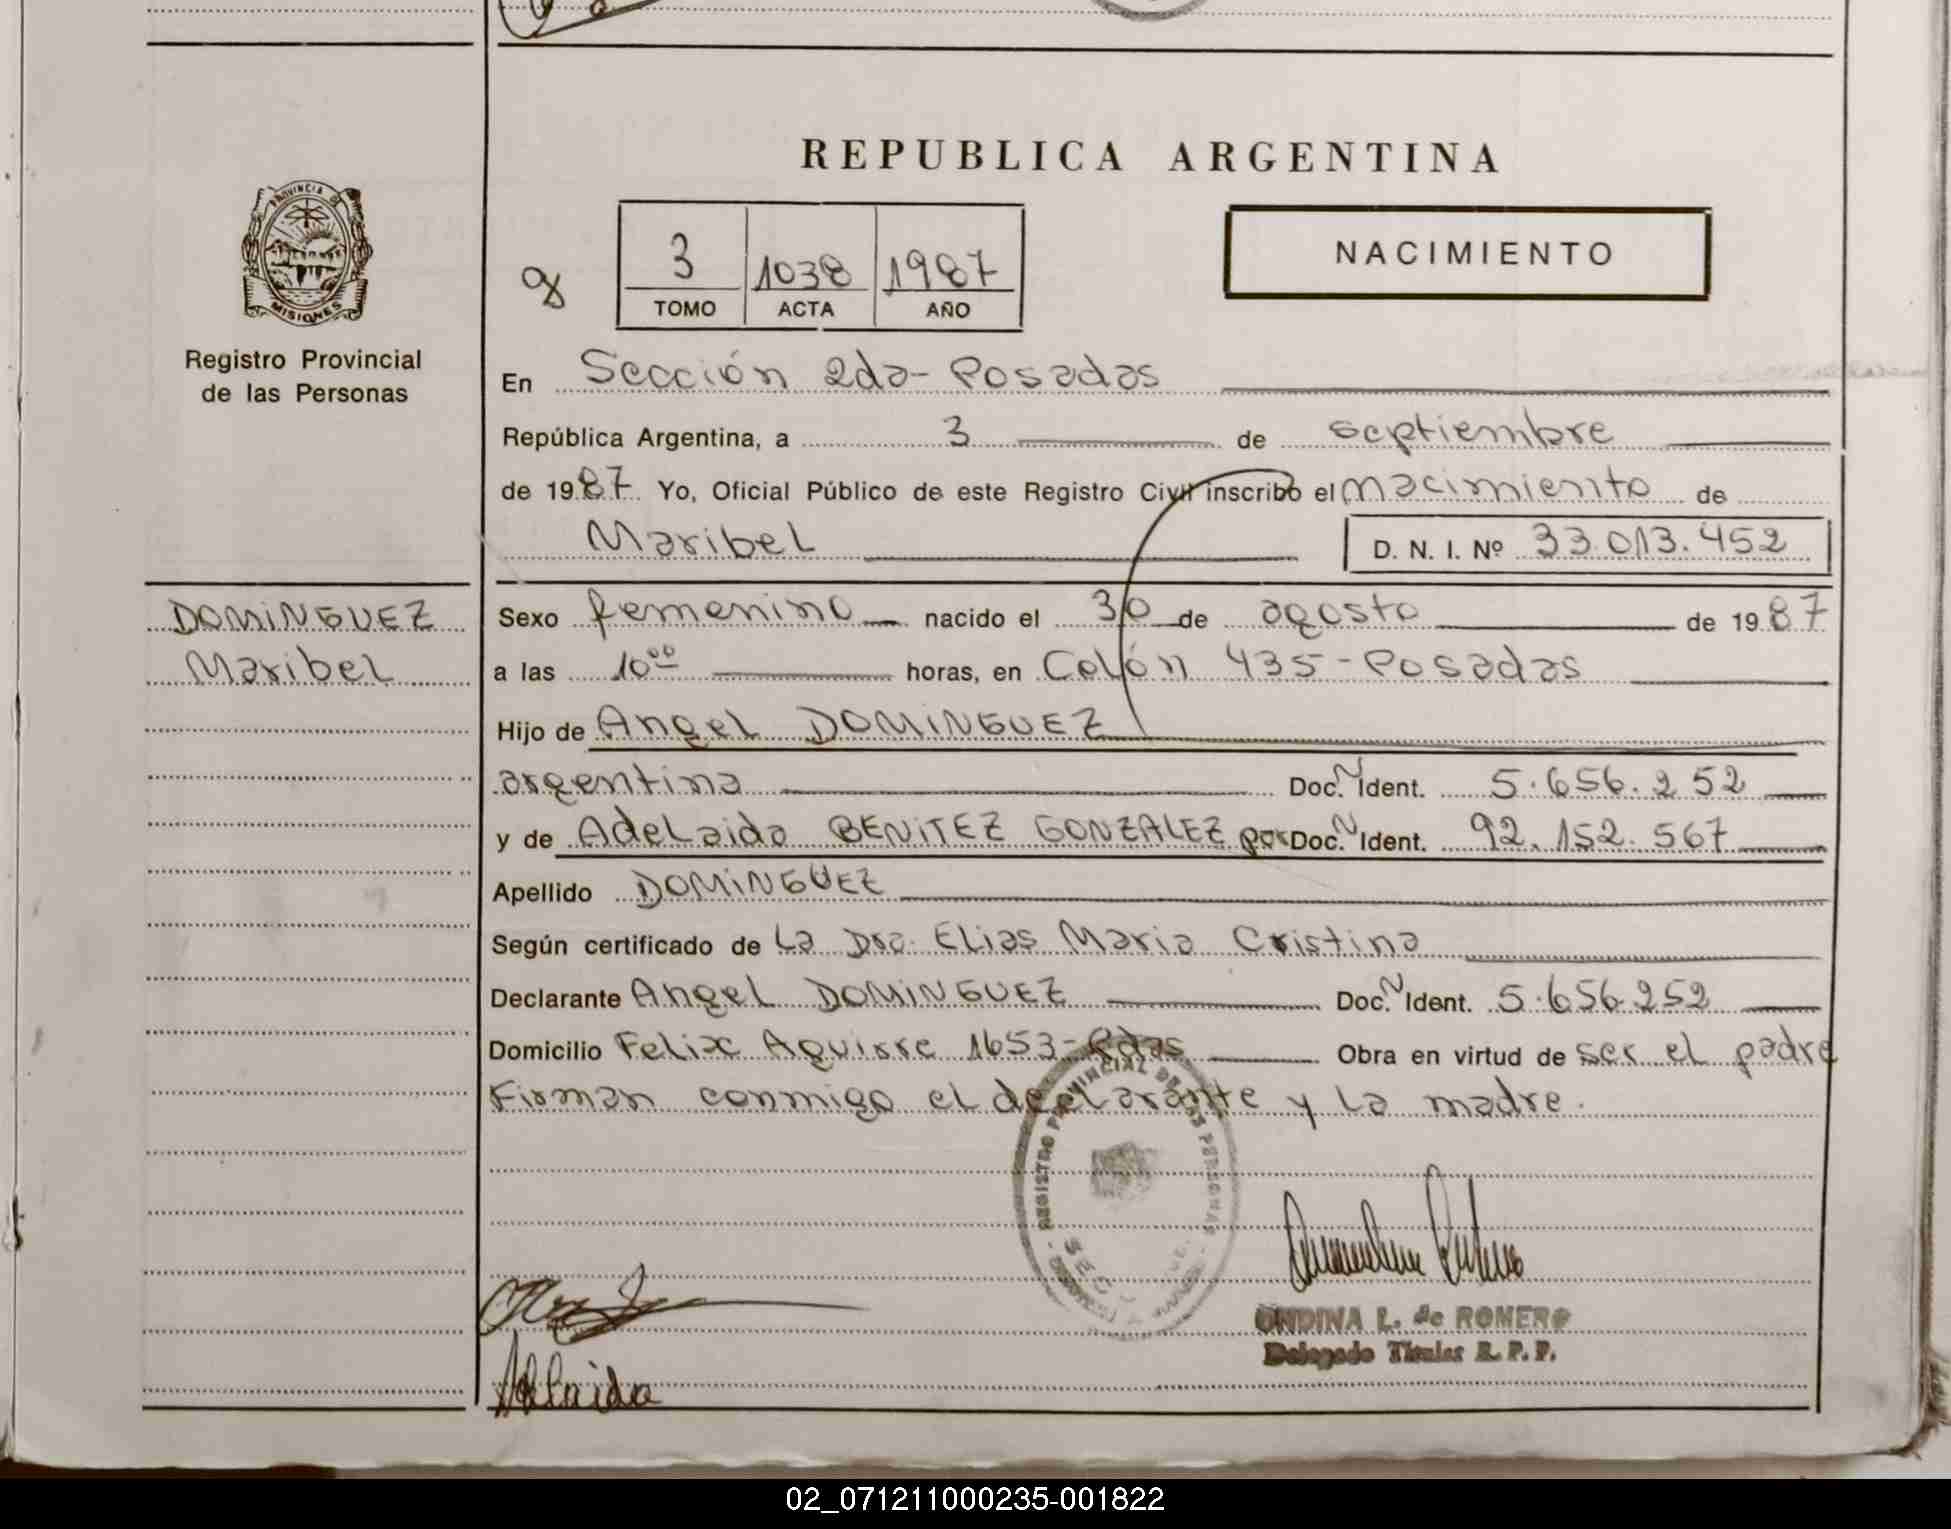 REPUBLICA ARGENTINA
PROVINCIA DE
MISIONES
Registro Provincial
de las Personas
3 1038 1987
TOMO ACTA AÑO
NACIMIENTO
En Sección 2da- Posadas
República Argentina, a 3 de septiembre
de 1987 Yo, Oficial Público de este Registro Civil inscribo el nacimiento de
Maribel D. N. I. Nº 33.013.452
DOMINGUEZ
Maribel
Sexo femenino nacido el 30 de agosto de 1987
a las 10⁰⁰ horas, en Colón 435-Posadas
Hijo de Angel DOMINGUEZ
argentina Doc. N Ident. 5.656.252
y de Adelaida BENITEZ GONZALEZ par Doc. N Ident. 92.152.567
Apellido DOMINGUEZ
Según certificado de La Dra. Elias Maria Cristina
Declarante Angel DOMINGUEZ Doc. N Ident. 5.656.252
Domicilio Felix Aguirre 1653-Pdas Obra en virtud de ser el padre
Firman conmigo el declarante y la madre.
REGISTRO PROVINCIAL DE LAS PERSONAS
Adelaida
ONDINA L. de ROMERO
Delegado Titular R. P. P.
02_071211000235-001822